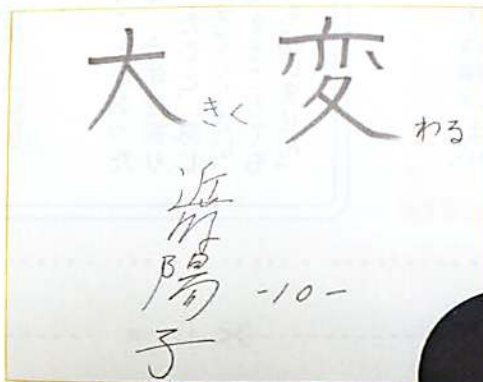 大きく変わる
近内陽子
-10-